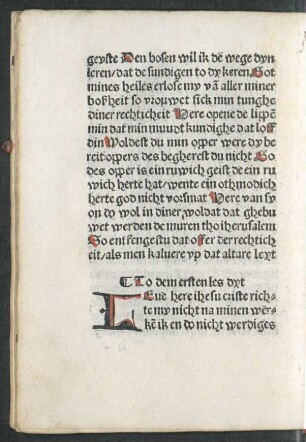 geyste Den bosen wil ik dē wege dyn
leren/dat de sundigen to dy keren Got
mines heiles erlose my vā aller miner
boßheit so vrouwet sick min tunghe
diner rechticheit Here opene de lippē
min dat min muudt kundighe dat loff
din Woldest du min opper were dy be
reit oppers des begherest du nicht Go
des opper is ein ruwich geist de ein ru
wich herte hat/wente ein othmodich
herte god nicht vorsmat Here van sy
on do wol in diner woldat dat ghebu
wet werden de muren tho iherusalem
So entfengestu dat offer der rechtich
eit/als men kaluere vp dat altare lext
¶ To dem ersten les dyt
LEue here ihesu criste rich-
te my nicht na minen wer-
kē ik en do nicht werdiges